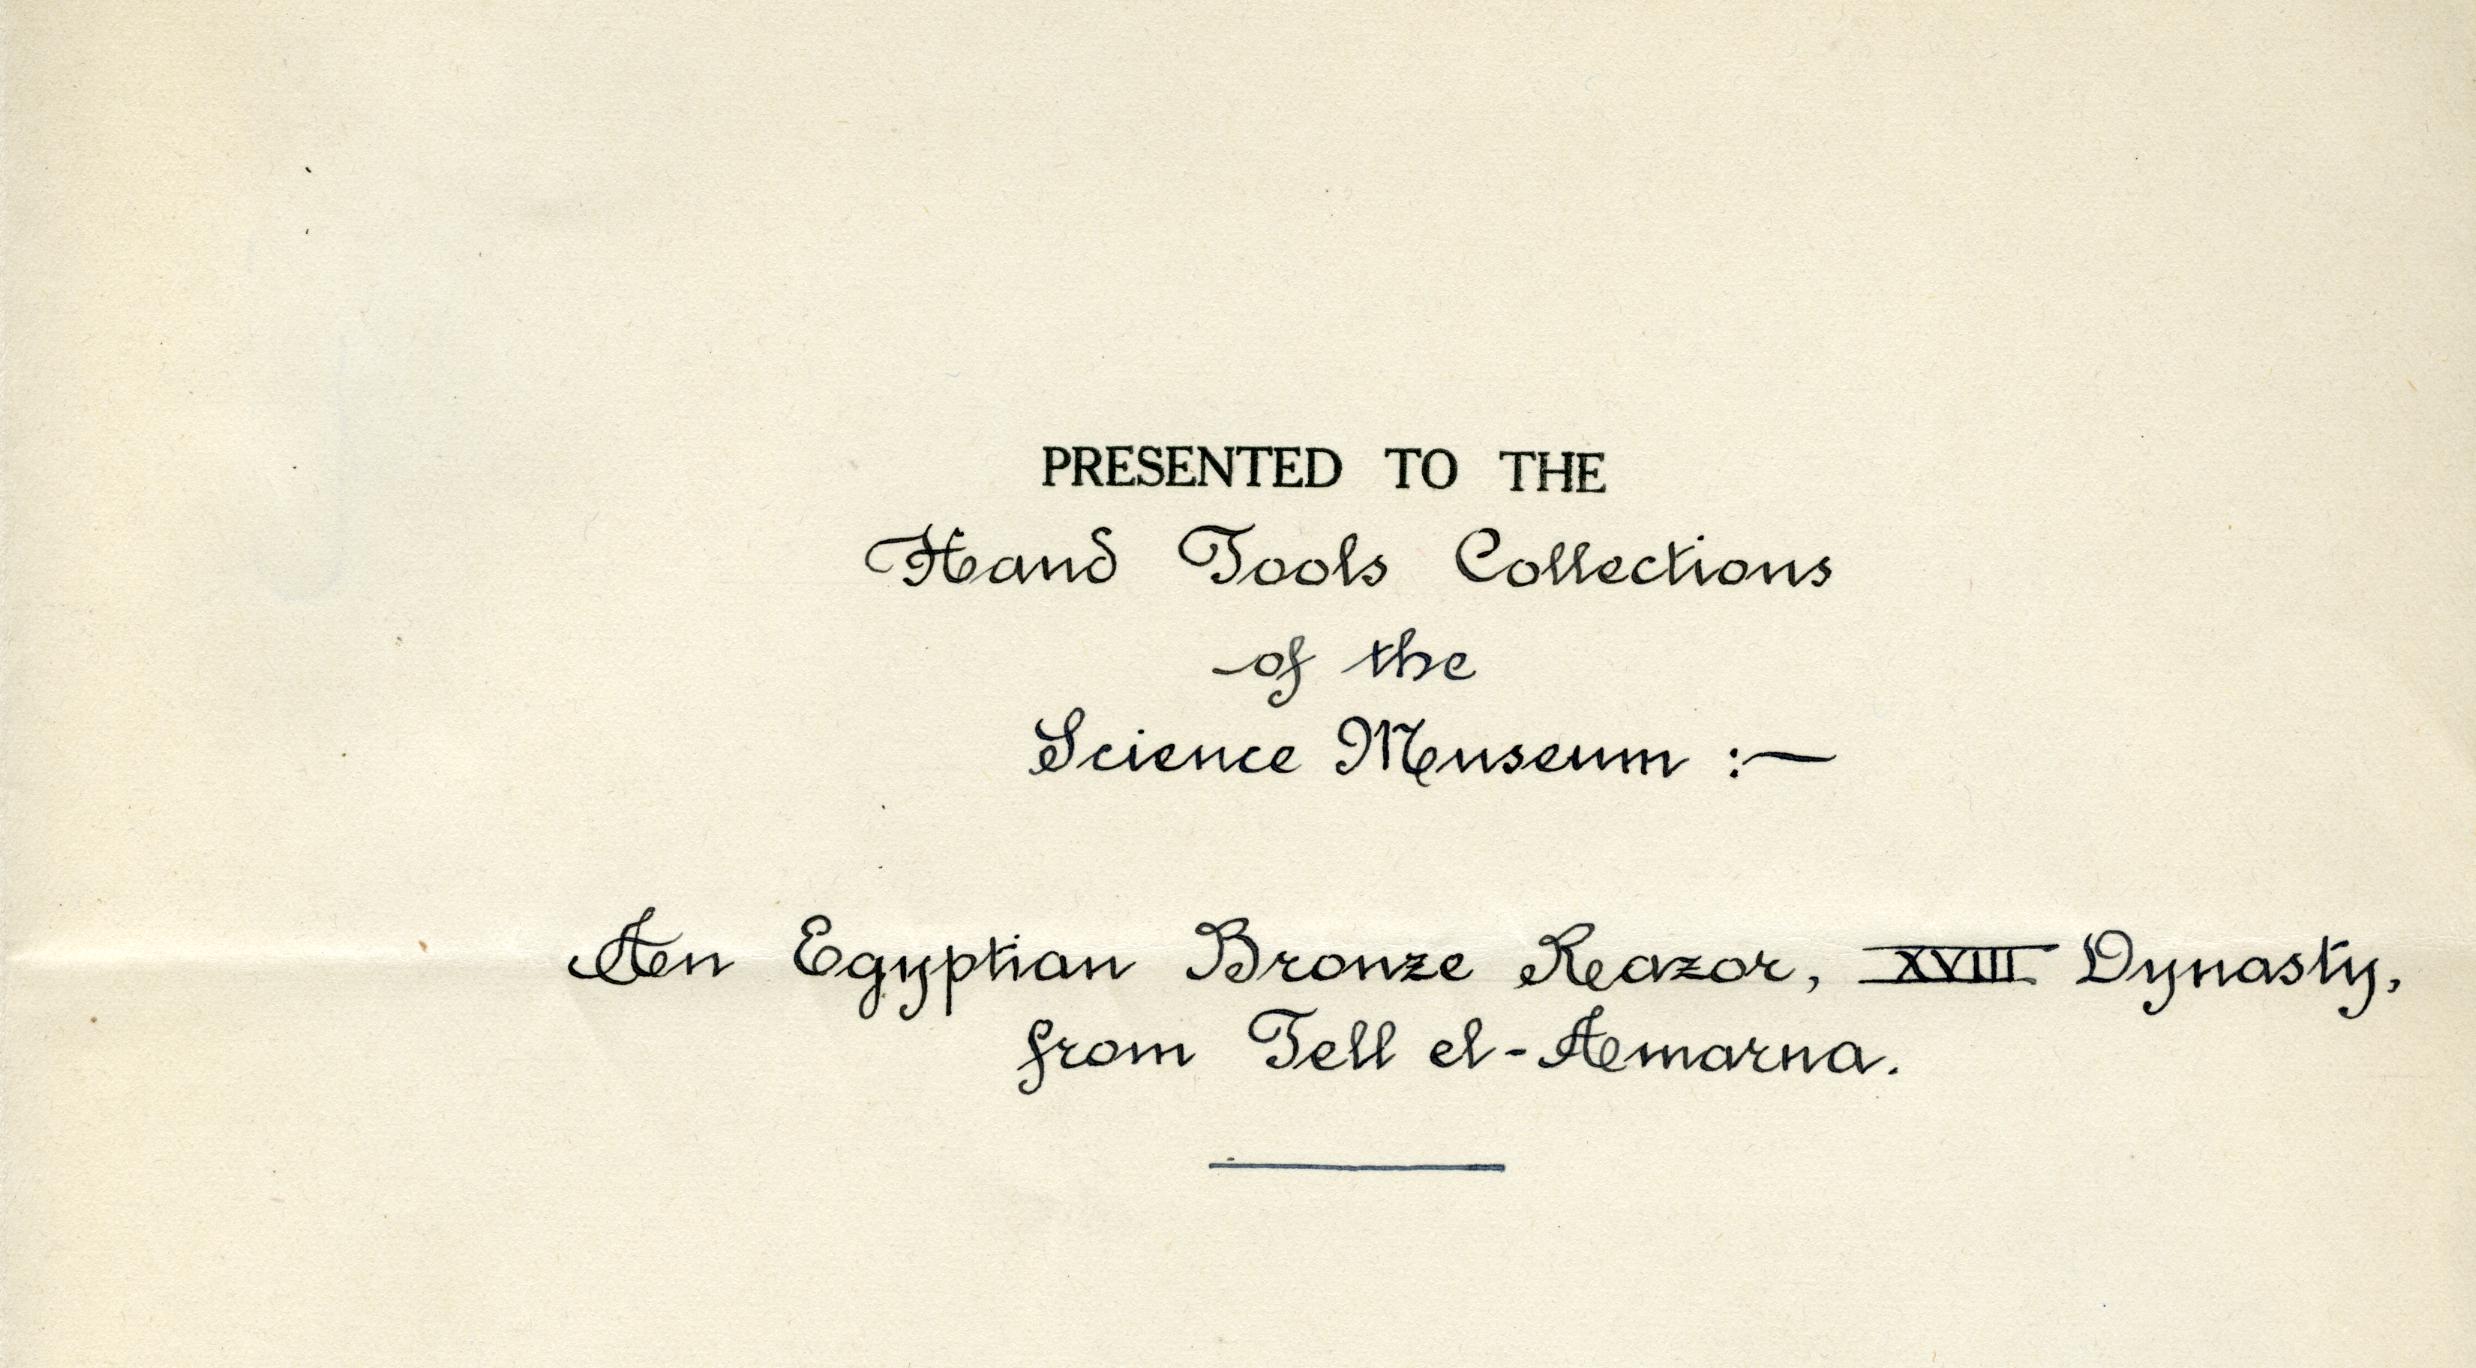 PRESENTED TO THE
Hand Tools Collections
of the
Science Museum :—
An Egyptian Bronze Razor, XVIII Dynasty,
from Tell el-Amarna.